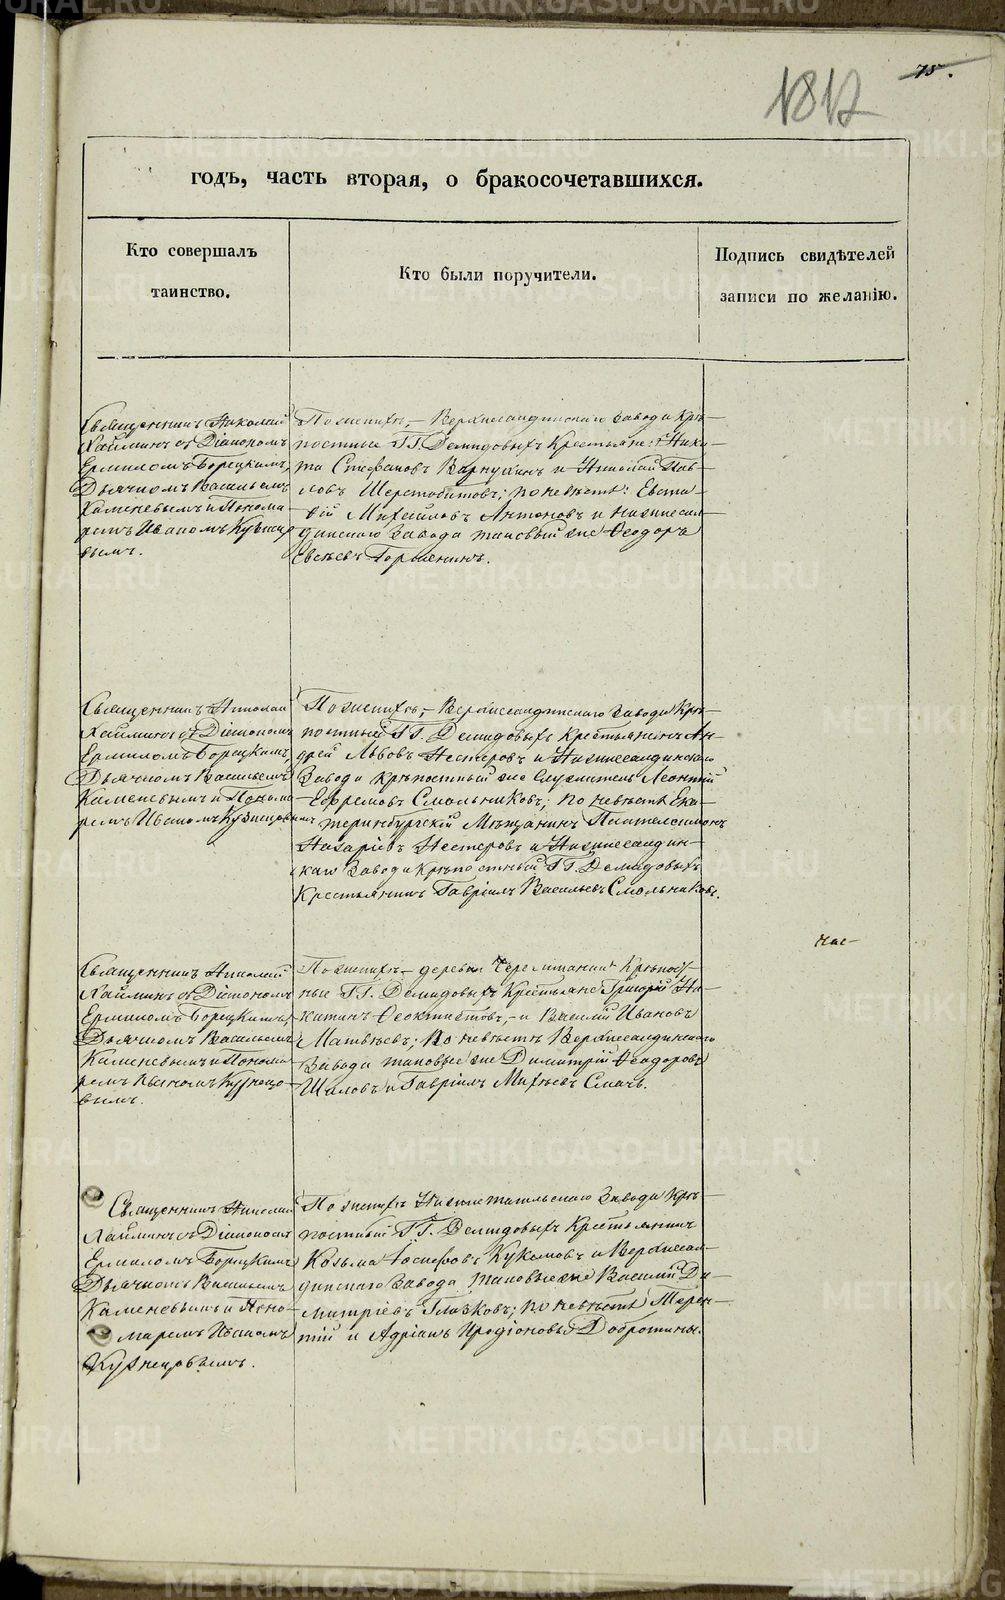 75.
1812
годъ, часть вторая, о бракосочетавшихся.
Кто совершалъ
таинство.
Кто были поручители.
Подпись свидѣтелей
записи по желанію.
Священникъ Николай
съ Діакономъ
Ермиломъ Борецкимъ,
Дьячкомъ Васильемъ
Каменевымъ и Понома-
ремъ Иваномъ Кузнецо-
вымъ.
По женихѣ, – Верхнесалдинскаго завода Крѣ-
постные ГГ. Демидовыхъ Крестьяне: Ники-
та Стефановъ и Николай Пав-
ловъ Шерстобитовъ; по невѣстѣ: Евста-
фій Михайловъ Антоновъ и Нижнесал-
динскаго Завода таковый же Ѳеодоръ
Евсѣевъ
Священникъ Николай
съ Діакономъ
Ермиломъ Борецкимъ,
Дьячкомъ Васильемъ
Каменевымъ и Понома-
ремъ Иваномъ Кузнецовымъ
По женихѣ, – Верхнесалдинскаго Завода Крѣ-
постный ГГ. Демидовыхъ Крестьянинъ Ан-
дрей Львовъ Нестеровъ и Нижнесалдинскаго
Завода крѣпостный же Служитель Леонтій
Ефремовъ Смольниковъ; по невѣстѣ Ека-
теринбургскій Мѣщанинъ Пантелеимонъ
Назаріевъ Нестеровъ и Нижнесалдин-
скаго Завода Крѣпостный ГГ. Демидовыхъ
Крестьянинъ Гавріилъ Васильевъ Смольниковъ.
нас-
Священникъ Николай
съ Діакономъ
Ермиломъ Борецкимъ,
Дьячкомъ Васильемъ
Каменевымъ и Понома-
ремъ Иваномъ Кузнецо-
вымъ.
По женихѣ – деревни Крѣпост-
ные ГГ. Демидовыхъ Крестьяне Григорій
Ѳеоктистовъ, – и Василій Ивановъ
Матвѣевъ; По невѣстѣ Верхнесалдинскаго
Завода таковые же Димитрій Ѳеодоровъ
и Гавріилъ Михѣевъ
Священникъ Николай
съ Діакономъ
Ермиломъ Борецкимъ
Дьячкомъ Васильемъ
Каменевымъ и Поно-
маремъ Иваномъ
Кузнецовымъ.
По женихѣ Нижнетагильскаго Завода Крѣ-
постный ГГ. Демидовыхъ Крестьянинъ
Козьма Іосифовъ и Верхнесал-
динскаго Завода таковый же Василій Ди-
митріевъ Глазковъ; по невѣстѣ Терен-
тій и Адріанъ Иродіоновы Добротины.
METRIKI.GASO-URAL.RU